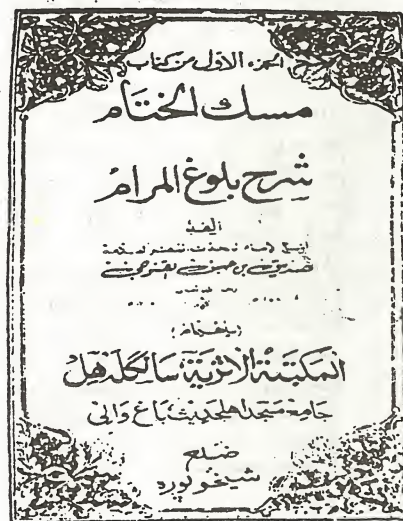 الجزء الاول من كتاب
مسك الختام
شرح بلوغ المرام
الفه
صديق بن حسن القنوجى
المكتبة الاثرية سانگله هل
جامع مسجد اهلحديث باغ والى
ضلع
شيخوپوره